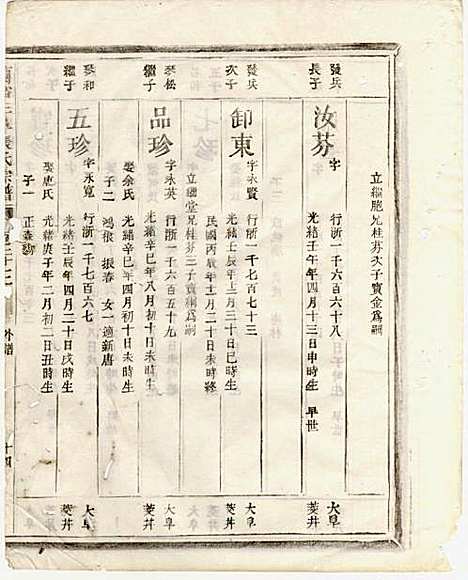 立繼胞兄桂芬次子寶金爲嗣
發兵
長子
汝芬
字
行浙一千六百六十八
光緒壬午年四月十三日申時生
早世
大阜
菱井
發兵
次子
卸東
字永賢
行浙一千七百七十三
光緒壬辰年二月三十日巳時生
民國丙戌年十二月二十日未時終
立繼堂兄桂芬三子寶鏑爲嗣
大阜
菱井
琴松
繼子
品珍
字永英
行浙一千六百五十九
光緒辛巳年八月初十日未時生
娶余氏
光緒辛巳年四月初十日未時生
子二
鴻根
振春
女一適新唐
大阜
菱井
琴和
繼子
五珍
字永寬
行浙一千七百六七
光緒壬辰年四月二十日戌時生
娶應氏
光緒庚子年二月初二日丑時生
子一
正
大阜
菱井
張氏宗譜
外譜
十四